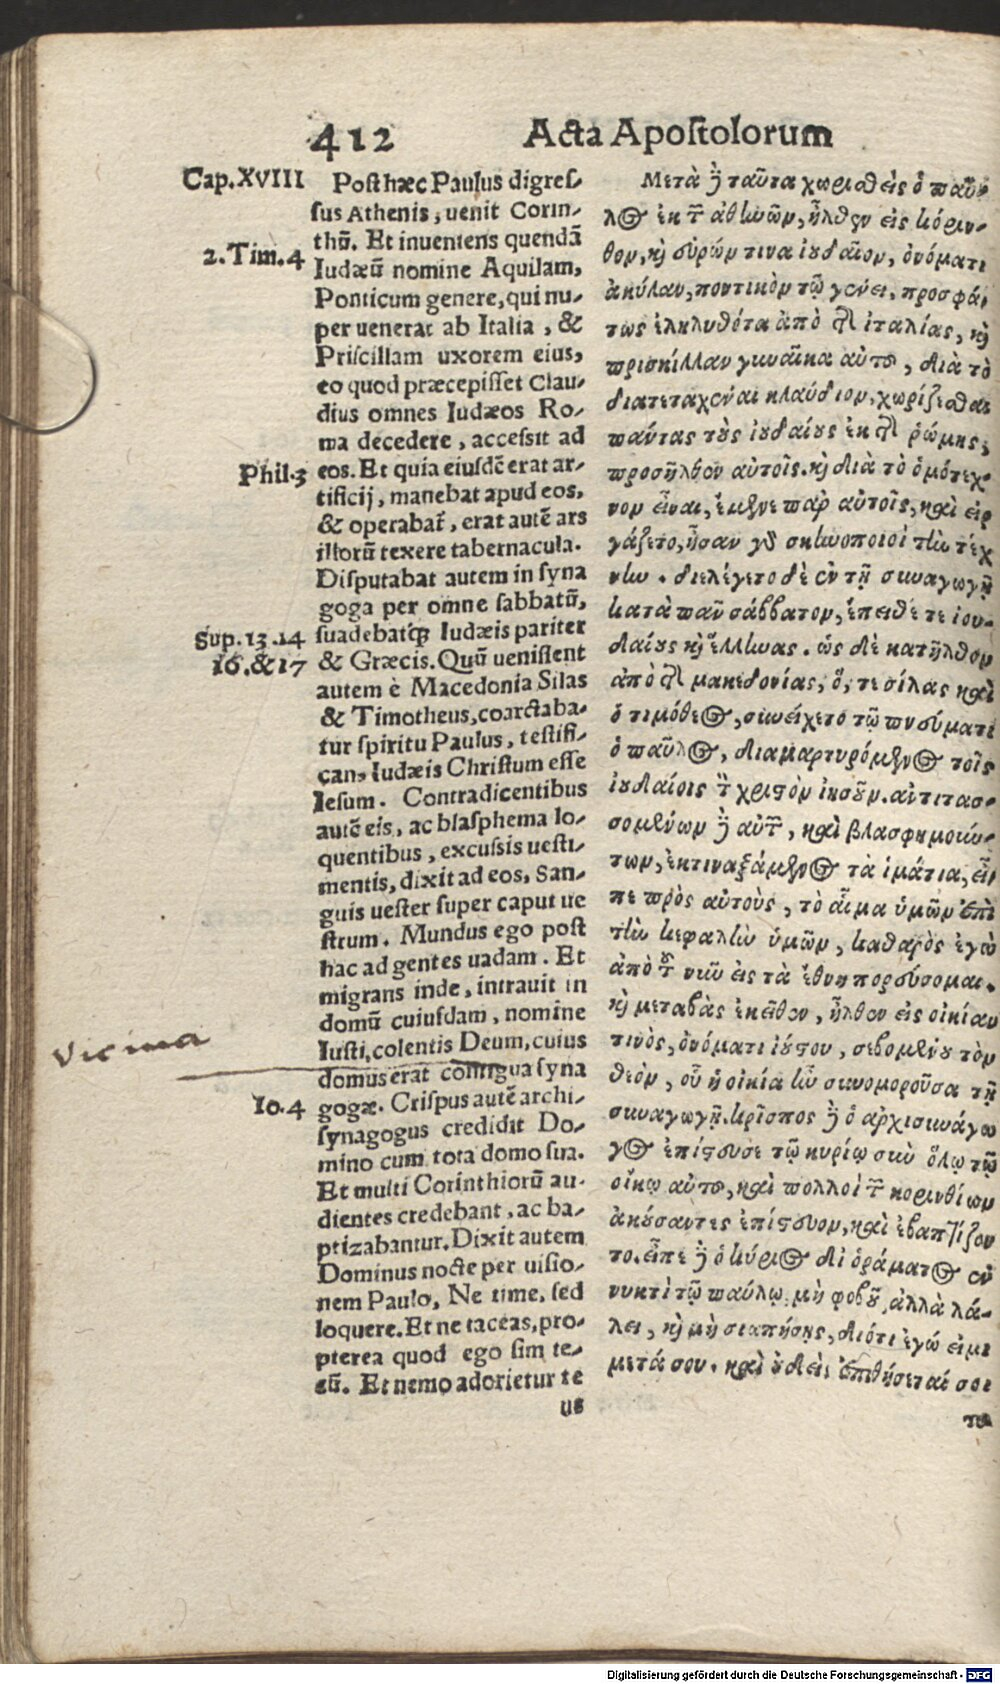 412 Acta Apostolorum
Cap.XVIII
2.Tim.4
Phil.3
Sup.13.14
16.&17
vicina
Io.4
Post hæc Paulus digreſ⸗
ſus Athenis, uenit Corin⸗
thū. Et inueniens quendā
Iudæū nomine Aquilam,
Ponticum genere, qui nu⸗
per uenerat ab Italia, &
Priſcillam uxorem eius,
eo quod præcepiſſet Clau⸗
dius omnes Iudæos Ro⸗
ma decedere, acceſsit ad
eos. Et quia eiuſdē erat ar⸗
tificij, manebat apud eos,
& operabat̄, erat autē ars
illorū texere tabernacula.
Diſputabat autem in ſyna
goga per omne ſabbatū,
ſuadebatq́ꝫ Iudæis pariter
& Græcis. Quū ueniſſent
autem è Macedonia Silas
& Timotheus, coarctaba⸗
tur ſpiritu Paulus, teſtifi⸗
cans Iudæis Chriſtum eſſe
Ieſum. Contradicentibus
autē eis, ac blaſphema lo⸗
quentibus, excuſsis ueſti⸗
mentis, dixit ad eos, San⸗
guis ueſter ſuper caput ue
ſtrum. Mundus ego poſt
hac ad gentes uadam. Et
migrans inde, intrauit in
domū cuiuſdam, nomine
Iuſti, colentis Deum, cuius
domus erat contigua ſyna
gogæ. Criſpus autē archi⸗
ſynagogus credidit Do⸗
mino cum tota domo ſua.
Et multi Corinthiorū au⸗
dientes credebant, ac ba⸗
ptizabantur. Dixit autem
Dominus nocte per uiſio⸗
nem Paulo, Ne time, ſed
loquere. Et ne taceas, pro⸗
pterea quod ego ſim te⸗
cū. Et nemo adorietur te
us
Μετὰ δὲ ταῦτα χωρισθεὶς ὁ παῦ
λος ἐκ τῶν ἀθηνῶν, ἦλθεν εἰς κόριν⸗
θον, καὶ εὑρών τινα ἰουδαῖον, ὀνόματι
ἀκύλαν, ποντικὸν τῷ γένει, προσφά
τως ἐληλυθότα ἀπὸ τῆς ἰταλίας, καὶ
πρισκίλλαν γυναῖκα αὐτοῦ, διὰ τὸ
διατεταχέναι κλαύδιον, χωρίζεσθαι
πάντας τοὺς ἰουδαίους ἐκ τῆς ῥώμης,
προσῆλθεν αὐτοῖς. καὶ διὰ τὸ ὁμότεχ⸗
νον εἶναι, ἔμενε παρ αὐτοῖς, καὶ εἰρ
γάζετο, ἦσαν γὰρ σκηνοποιοὶ τὴν τέχ
νην. διελέγετο δὲ ἐν τῇ συναγωγῇ
κατὰ πᾶν σάββατον, ἔπειθέ τε ἰου⸗
δαίους καὶ ἕλληνας. ὡς δὲ κατῆλθον
ἀπὸ τῆς μακεδονίας, ὅ, τε σίλας καὶ
ὁ τιμόθεος, συνείχετο τῷ πνεύματι
ὁ παῦλος, διαμαρτυρόμενος τοῖς
ἰουδαίοις τὸν χριστὸν ἰησοῦν. ἀντιτασ⸗
σομένων δὲ αὐτῶν, καὶ βλασφημούν⸗
των, ἐκτιναξάμενος τὰ ἱμάτια, εἶ
πε πρὸς αὐτοὺς, τὸ αἷμα ὑμῶν ἐπὶ
τὴν κεφαλὴν ὑμῶν, καθαρὸς ἐγὼ
ἀπὸ τοῦ νῦν εἰς τὰ ἔθνη πορεύσομαι.
καὶ μεταβὰς ἐκεῖθεν, ἦλθεν εἰς οἰκίαν
τινὸς, ὀνόματι ἰούστου, σεβομένου τὸν
θεὸν, οὗ ἡ οἰκία ἦν συνομοροῦσα τῇ
συναγωγῇ. κρῖσπος δὲ ὁ ἀρχισυνάγω
γος ἐπίστευσε τῷ κυρίῳ σὺν ὅλῳ τῷ
οἴκῳ αὐτοῦ, καὶ πολλοὶ τῶν κορινθίων
ἀκούσαντες ἐπίστευον, καὶ ἐβαπτίζον
το. εἶπε δὲ ὁ κύριος δι ὁράματος ἐν
νυκτὶ τῷ παύλῳ. μὴ φοβοῦ, ἀλλὰ λά⸗
λει, καὶ μὴ σιωπήσῃς, διότι ἐγώ εἰμι
μετά σου. καὶ οὐδεὶς ἐπιθήσεταί σοι
Digitalisierung gefördert durch die Deutsche Forschungsgemeinschaft - DFG